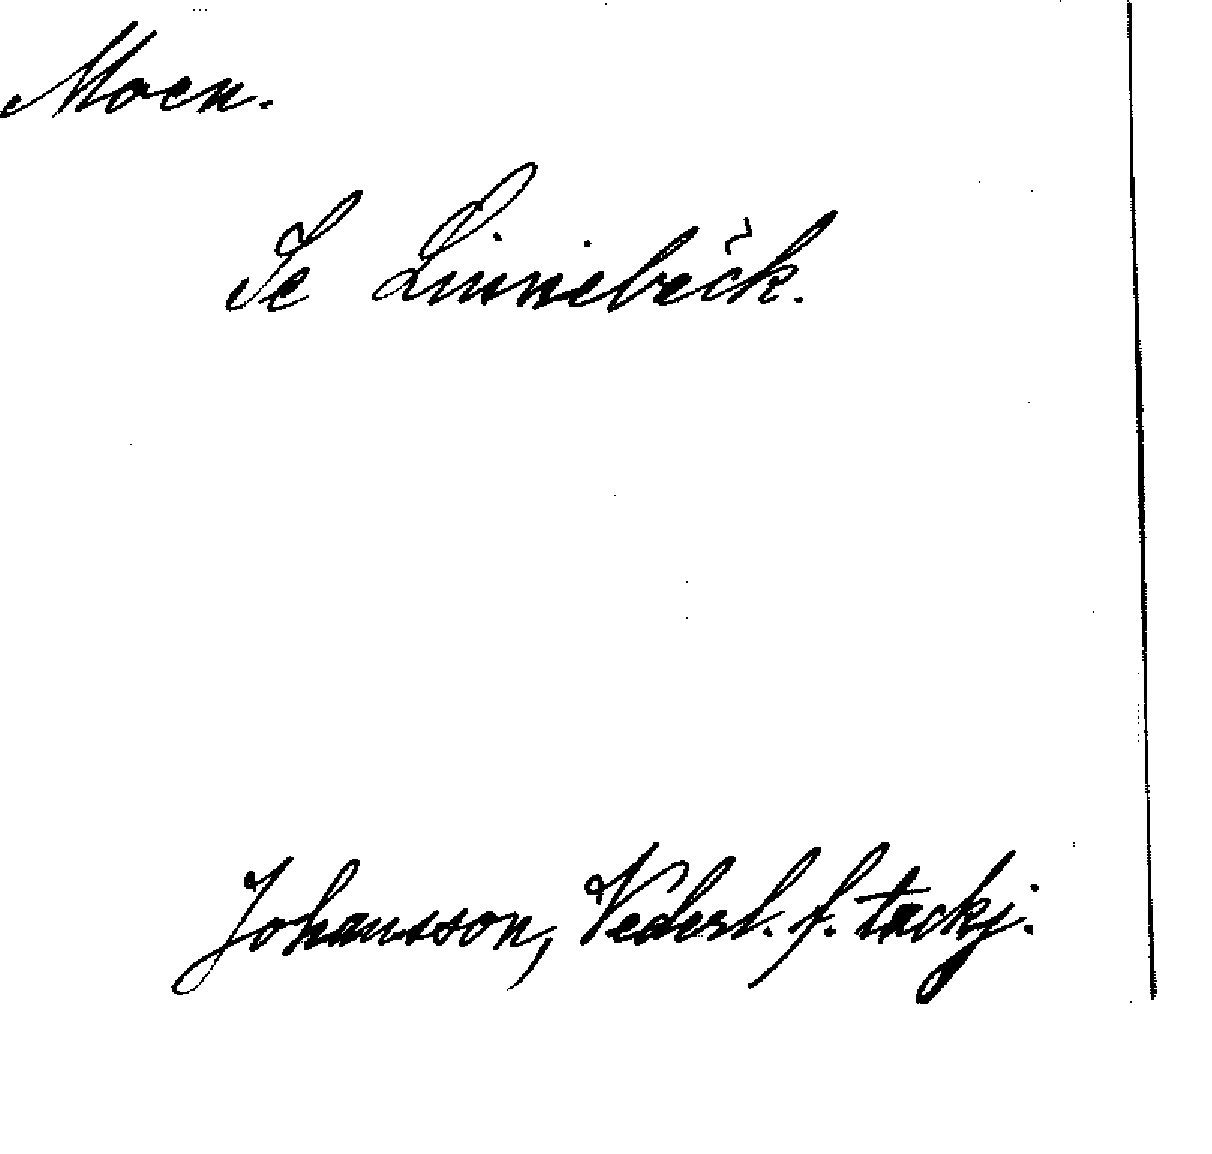 Moen.
Se Linnebäck.
Johansson, Vederl. f. tackj.